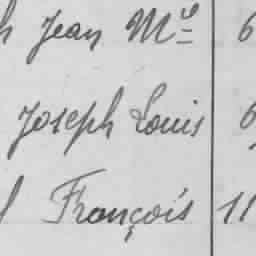 h Jean Mie 6
Joseph Louis 6
l François 11